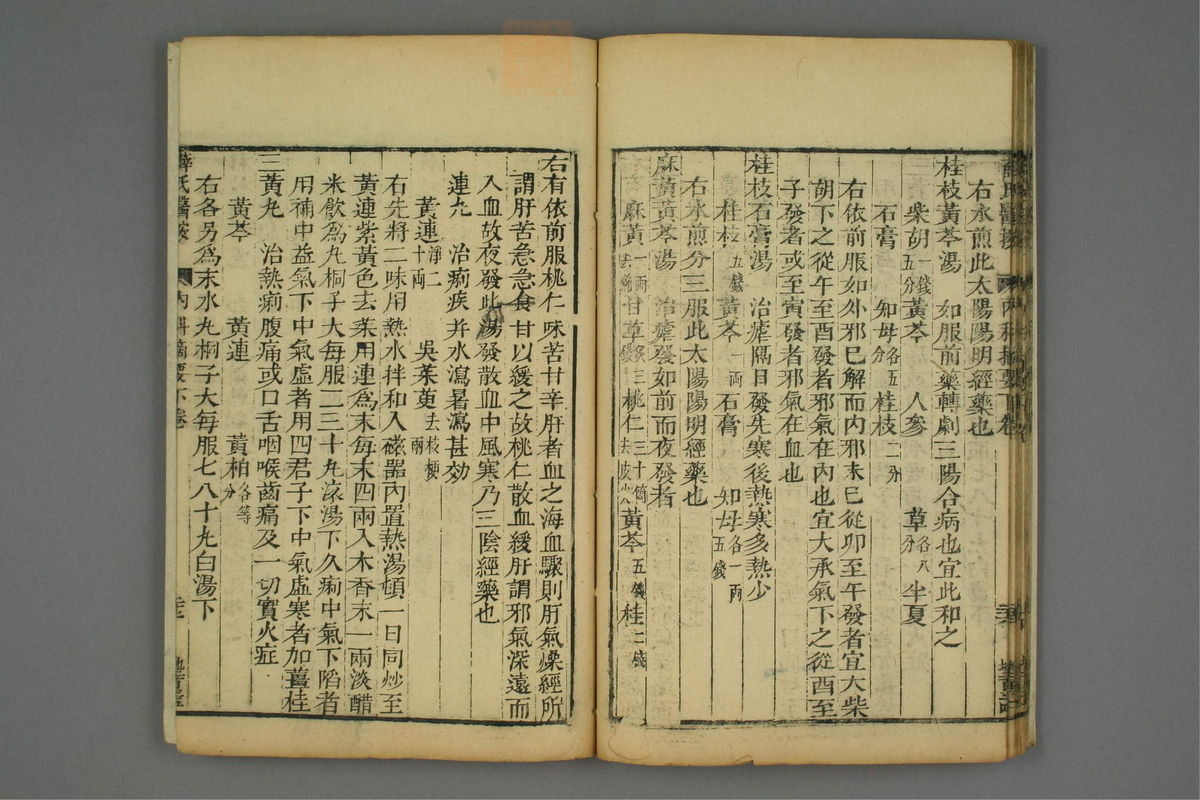 右水煎此太陽陽明經藥也
桂枝黃芩湯　如服前藥轉劇三陽合病也宜此和之
柴胡一錢五分　黃芩　人參　草各八分　半夏
石膏　知母各五分　桂枝二分
右依前服如外邪已解而內邪未已從卯至午發者宜大柴
胡下之從午至酉發者邪氣在內也宜大承氣下之從酉至
子發者或至寅發者邪氣在血也
桂枝石膏湯　治瘧隔日發先寒後熱寒多熱少
桂枝五錢　黃芩一兩　石膏　知母各一兩五錢
右水煎分三服此太陽陽明經藥也
麻黃黃芩湯　治瘧發如前而夜發者
麻黃一兩去節　甘草炙三錢　桃仁三十個去皮尖　黃芩五錢　桂二錢
右有依前服桃仁味苦甘辛肝者血之海血驟則肝氣燥經所
謂肝苦急急食甘以緩之故桃仁散血緩肝謂邪氣深遠而
入血故夜發此湯發散血中風寒乃三陰經藥也
連丸　治痢疾并水瀉暑瀉甚効
黃連淨二十兩　吳茱萸去枝梗　兩
右先將二味用熱水拌和入磁器內置熱湯頓一日同炒至
黃連紫黃色去茱用連為末每末四兩入木香末一兩淡醋
米飲為丸桐子大每服二三十丸滾湯下久痢中氣下陷者
用補中益氣下中氣虛者用四君子下中氣虛寒者加薑桂
三黃丸　治熱痢腹痛或口舌咽喉齒痛及一切實火症
黃芩　黃連　黃柏各等分
右各另為末水丸桐子大每服七八十丸白湯下
薛氏醫按　內科摘要下卷